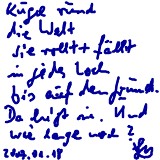 Kugel rund
die Welt
sie rollt + fällt
in jedes Loch
bis auf den Grund.
Da liegt sie. Und
wie lange noch?